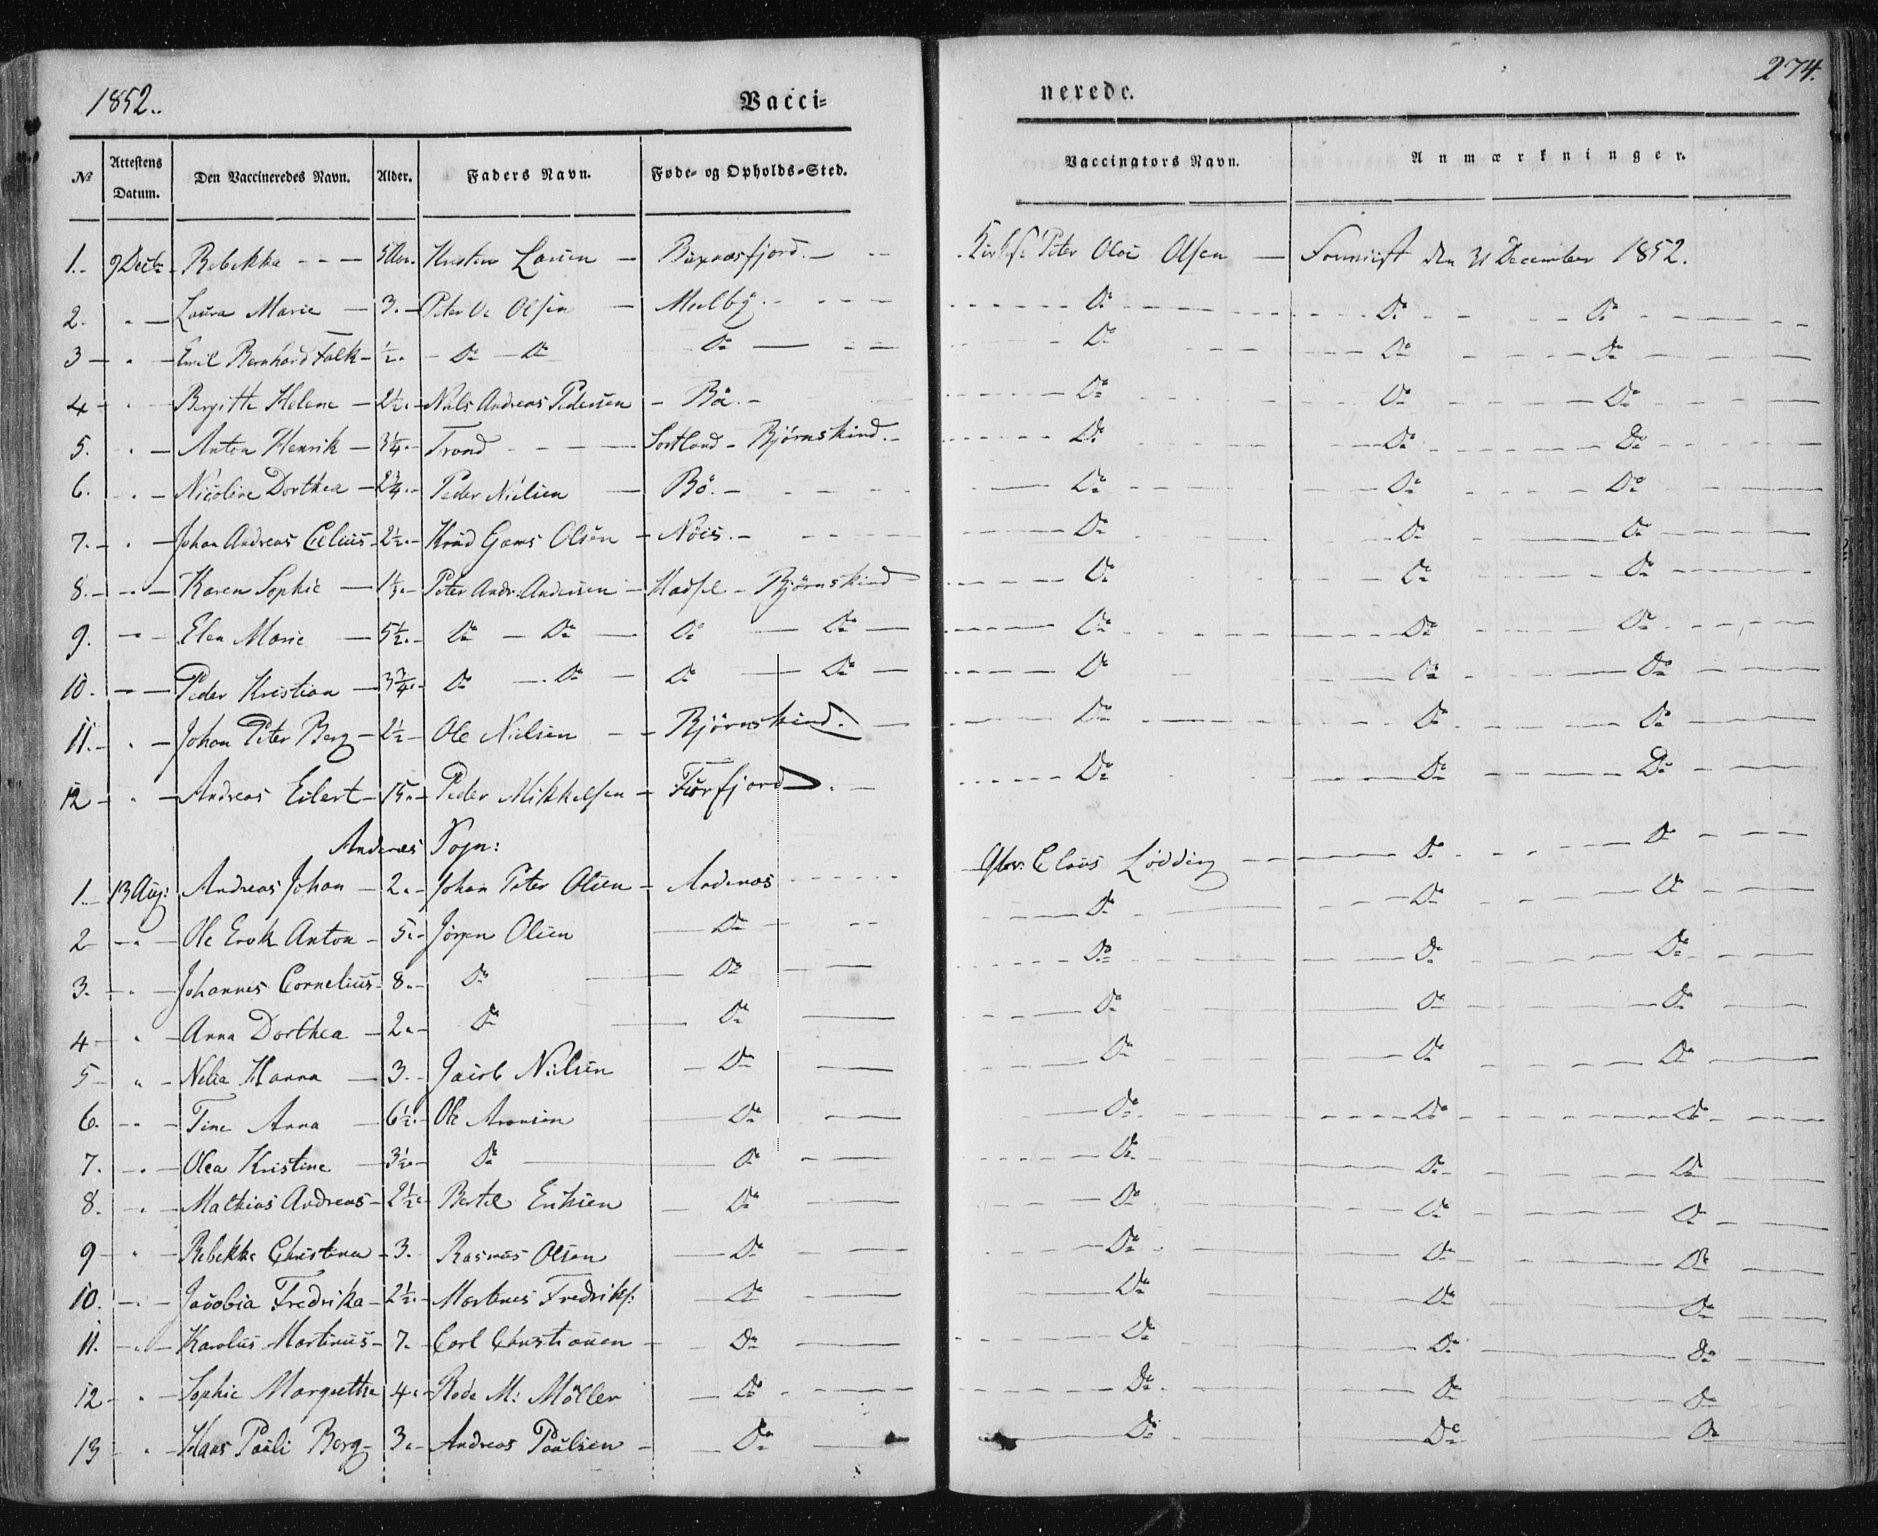 1852.
Vacci=
nerede.
274.
No Attestens Datum. Den Vaccineredes Navn. Alder. Faders Navn. Føde- og Opholds-Sted. Vaccinators Navn. Anmærkninger.
1. 9 Rebekka 5 Larsen Peter Olai Olsen den 31 December 1852.
2. " Laura Marie 3. Peter Ol Olsen Melby Do Do Do
3 " Emil Bernhard Falk ½. Do Do Do Do Do Do
4 " Bergitte Helene 2½. Niels Andreas Pedersen Bø. Do Do Do
5. " Anton Henrik 3¼. Trond Sortland Bjørnskind. Do Do Do
6. " Nicoline Dorthea 2¼. Peder Nielsen Bø. Do Do Do
7. " Johan Andreas 2½. Olsen Nøis. Do Do Do
8. " Karen Sophie Peter Andr. Andersen Hadsel Bjørnskind Do Do Do
9. " Elen Marie 5½. Do Do Do Do Do Do Do
10. " Peder Kristian 3¾. Do Do Do Do Do Do Do
11. " Johan Peter Berg 2½ Ole Nielsen Bjørnskind. Do Do Do
12 " Andreas Eilert 15. Peder Mikkelsen Forfjord. Do Do Do
Andenæs Sogn:
1. 13 Aug: Andreas Johan 2. Johan Peter Olsen Andenæs Claus Lødding Do Do
2 " Ole Erik Anton 5. Jørgen Olsen Do Do Do Do
3. " Johannes Cornelius 8. Do Do Do Do Do
4 " Anna Dorthea 2. Do Do Do Do Do
5 " Hanna 3. Jacob Nielsen Do Do Do Do
6. " Tine Anna 6½. Ole Aronsen Do Do Do Do
7. " Olea Kristine 3½. Do Do Do Do Do
8. " Mathias Andreas 2½. Bertel Eriksen Do Do Do Do
9 " Rebekka Christina 3. Rasmus Olsen Do Do Do Do
10. " Jacobia Fredrika 2½. Martines Fredriks: Do Do Do Do
11. " Karolus Martinus 7. Carl Christiansen Do Do Do Do
12 " Sophie Margrethe 4. Rode M: Møller Do Do Do Do
13 " Hans Pauli Berg 3. Andreas Paulsen Do Do Do Do